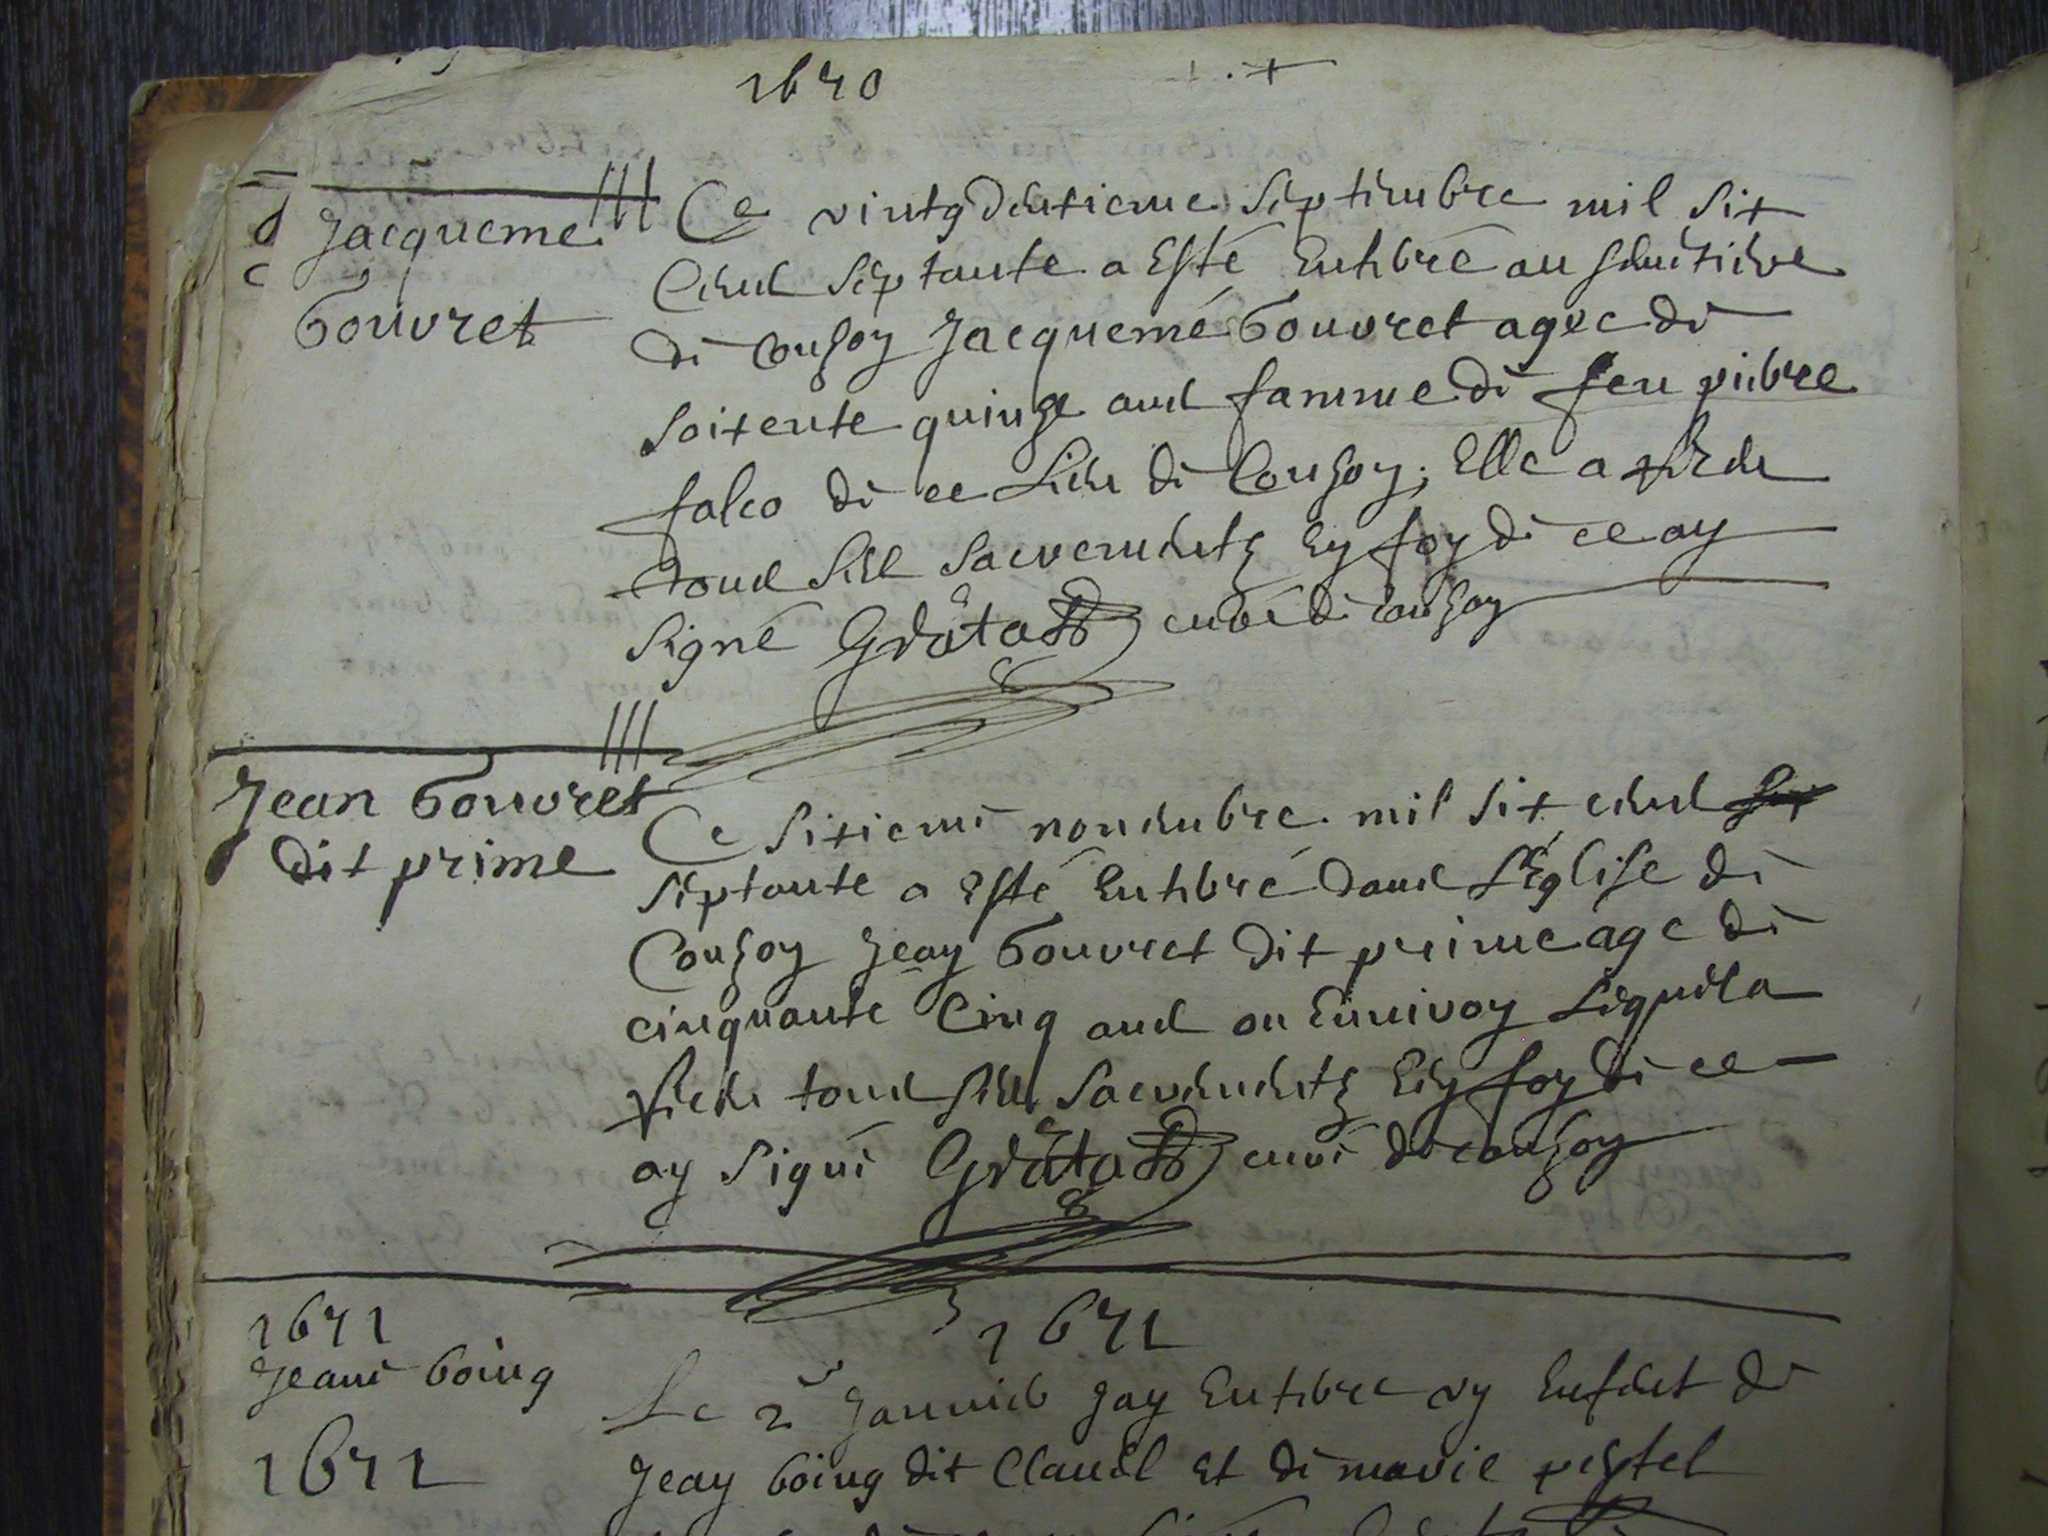 1670
Jacqueme
bouvret
Ce vintg deuxieme septembre mil six
cens septante a esté enterré au semetiere
de Cousoy Jacqueme bouvret agee de
soixente quinze ans famme de feu pierre
falco de ce lieu de Cousoy; elle a receu
tous ses sacrements en foy de ce ay
signé curé de cousoy
Jean bouvret
dit prime
Ce sixieme novembre mil six cens
septante a esté enterré dans l'Église de
Cousoy Jean bouvret dit prime age de
cinquante cinq ans ou environ lequel a
receu tous ses sacrements en foy de ce
ay signé curé de cousoy
1671
Jean boing
1671
1671
Le 2 Janvier jay enterre un enfent de
Jean boing dit Claudel et de marie